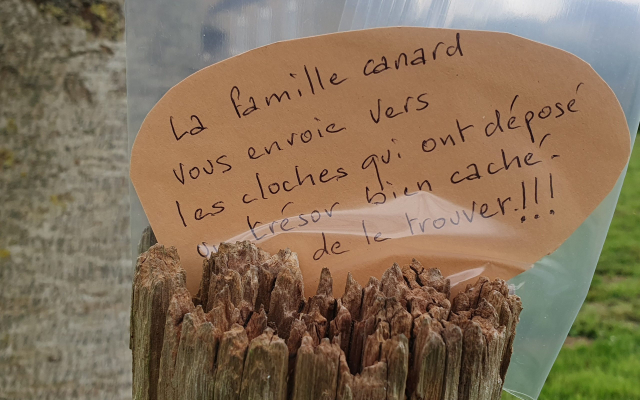 La famille canard
vous envoie vers
les cloches qui ont déposé
un trésor bien caché.
de le trouver!!!